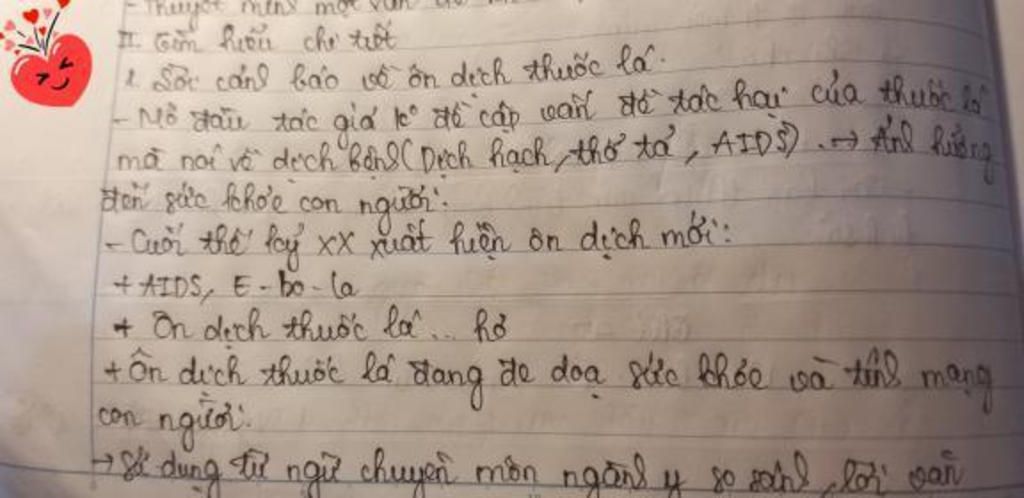 - Thuyết minh một vấn đề
II. Tìm hiểu chi tiết
1. Lời cảnh báo về ôn dịch thuốc lá.
- Mở đầu tác giả k° đề cập vấn đề tác hại của thuốc lá
mà nói về dịch bệnh (Dịch hạch, thổ tả, AIDS). → Ảnh hưởng
đến sức khỏe con người.
- Cuối thế kỷ XX xuất hiện ôn dịch mới:
+ AIDS, E-bo-la
+ Ôn dịch thuốc lá... hở
+ Ôn dịch thuốc lá đang đe doạ sức khỏe và tính mạng
con người.
→ Sử dụng từ ngữ chuyên môn ngành y so sánh, lời văn